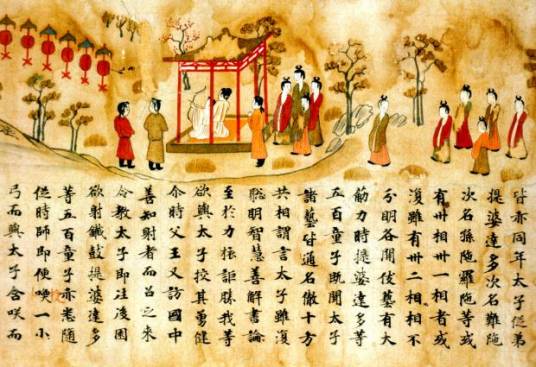 皆亦同年太子從弟
提婆達多次名難陁
次名孫陁羅陁等或
有卅相卅一相者或
復雖有卅二相相不
分明各閑伎藝有大
筋力時提婆達多等
五百童子既聞太子
諸藝皆通名徹十方
共相謂言太子雖復
聡明智慧善解書論
至於力旅詎勝我等
欲與太子挍其勇健
尒時父王又訪國中
善知射者而召之来
令教太子即往後園
欲射鐵鼓提婆達多
等五百童子亦悉随
従時師即便喚一小
弓而與太子含咲而